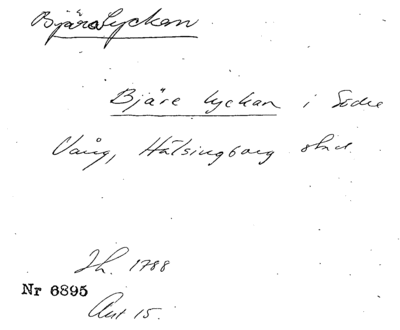 Bjärelyckan
Bjäre lyckan i Södre
Vång, Hälsingborg stad
Jh. 1788
Nr 6895
Akt 15.